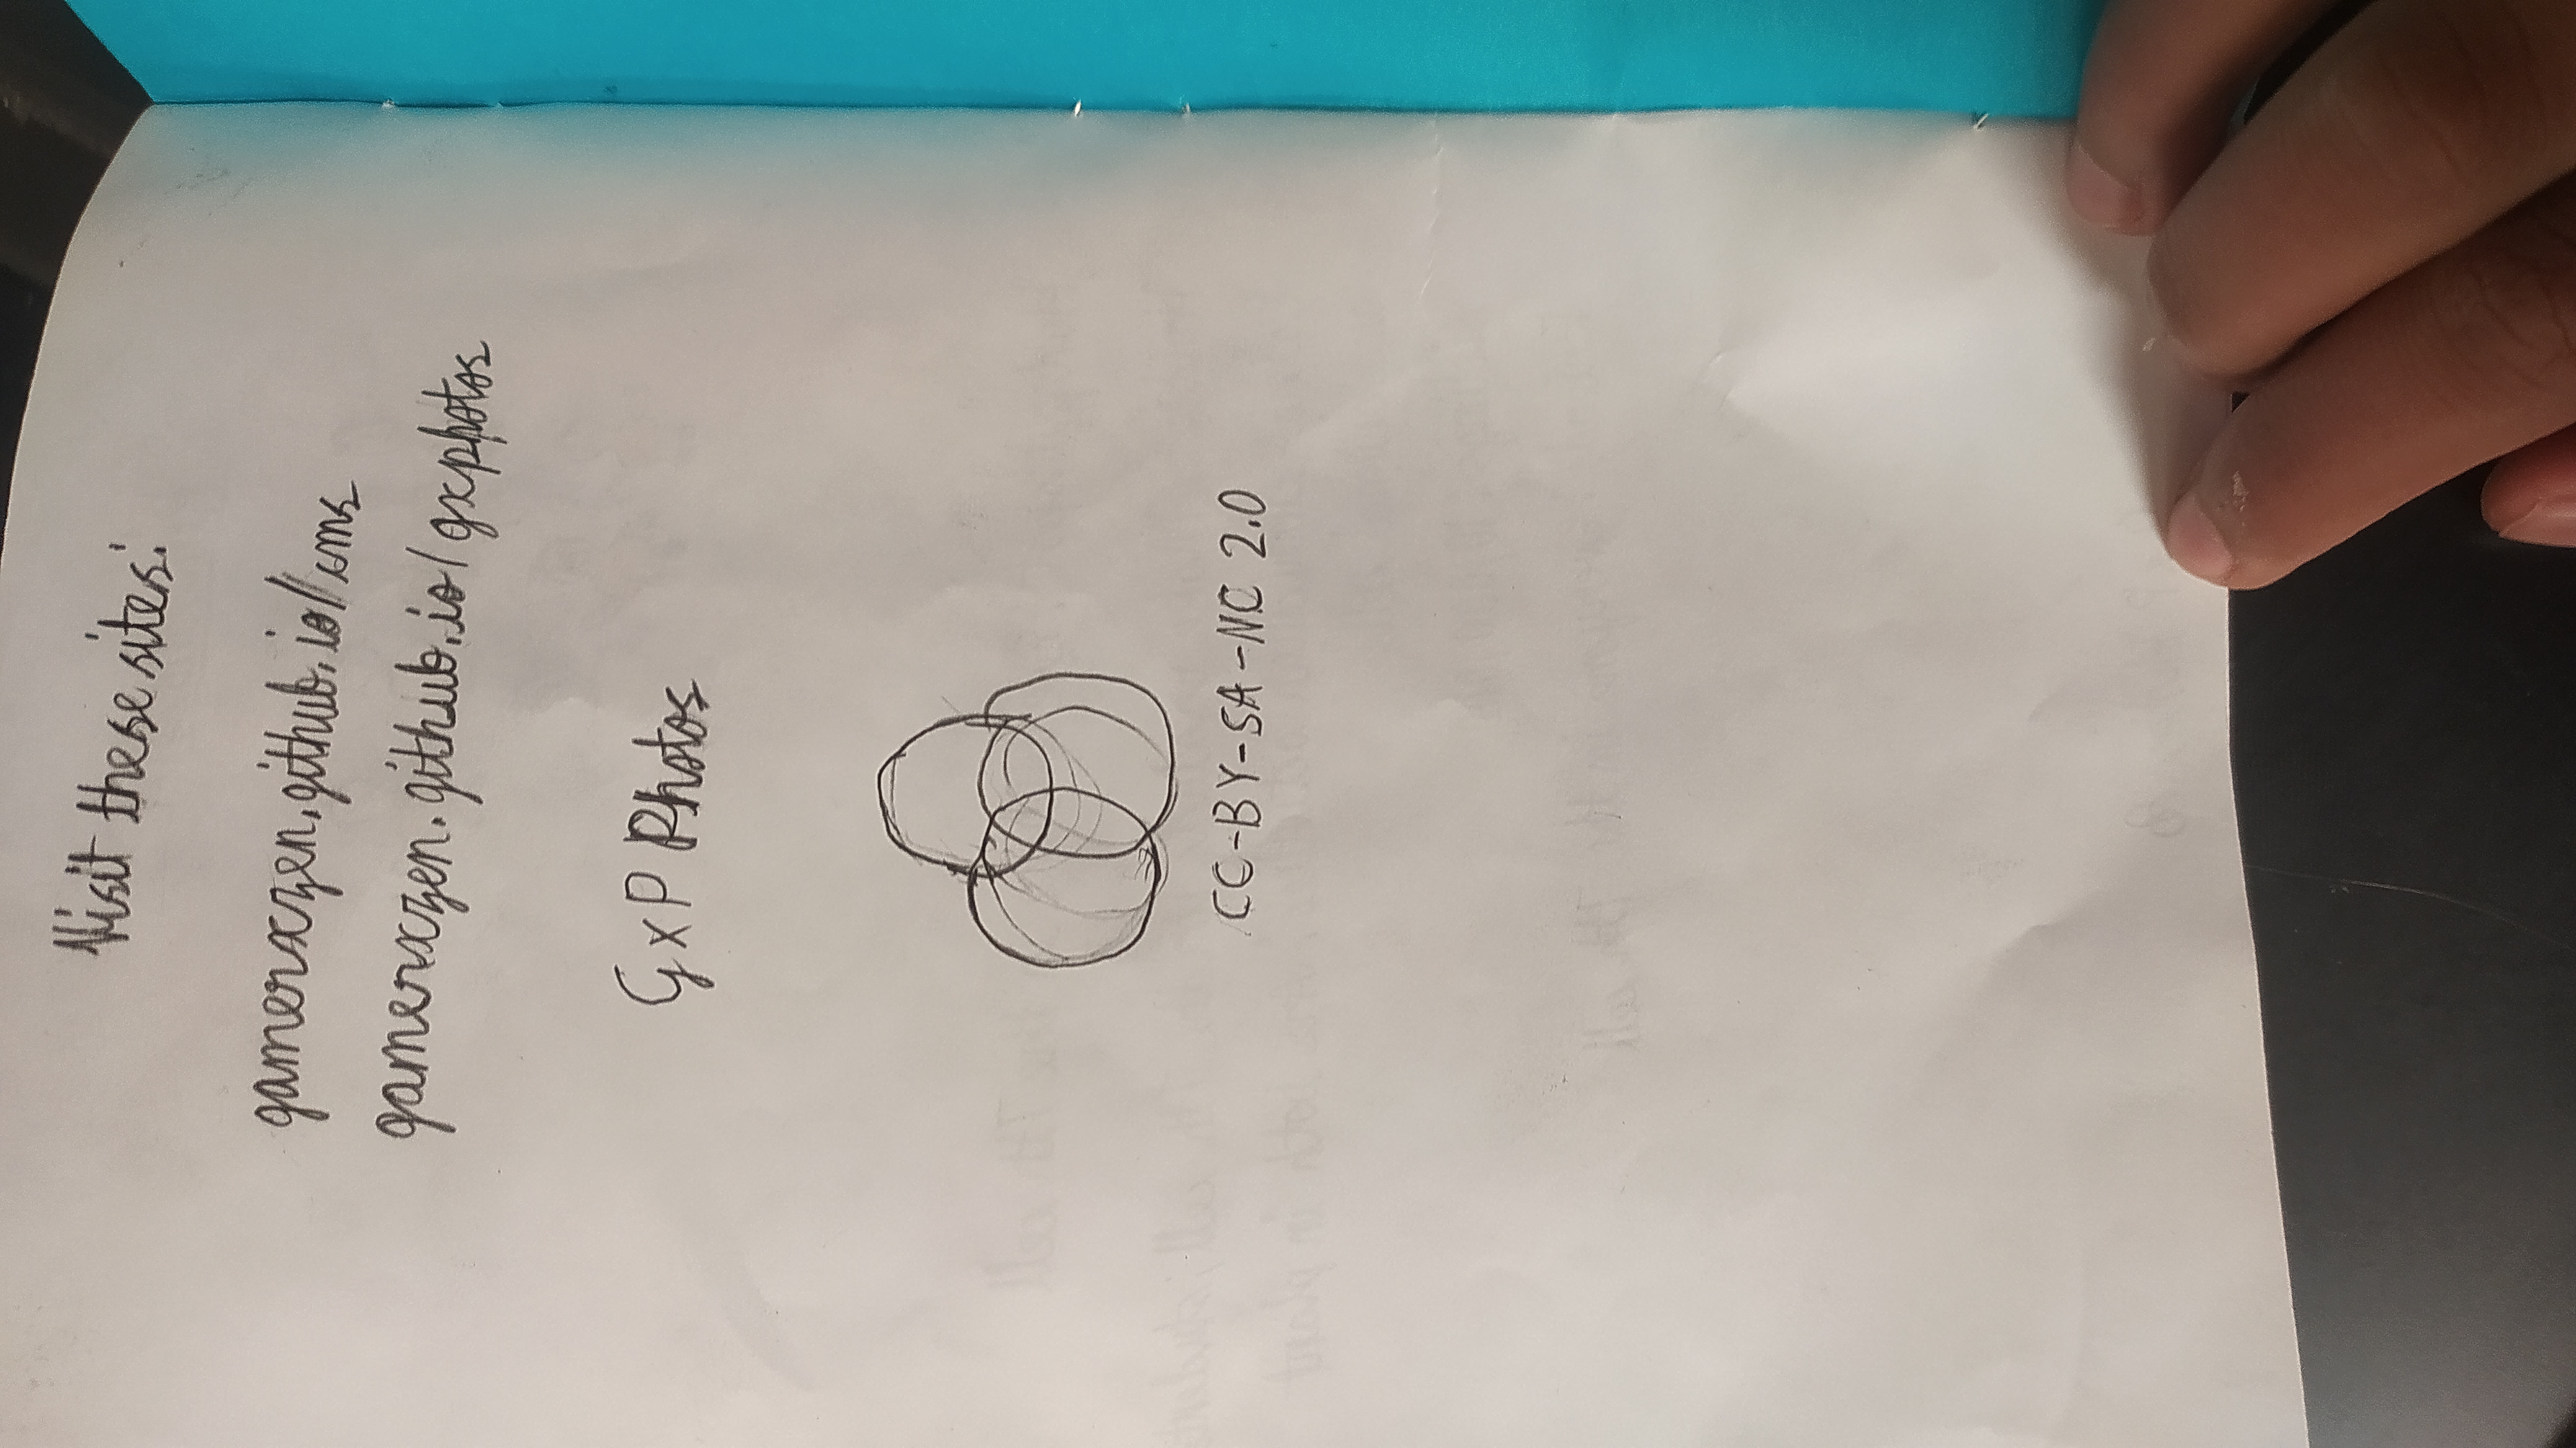 Visit these sites:
gamerxzen.github.io/sims
gamerxzen.github.io/gxphotos
GxP Photos
CC-BY-SA-NC 2.0